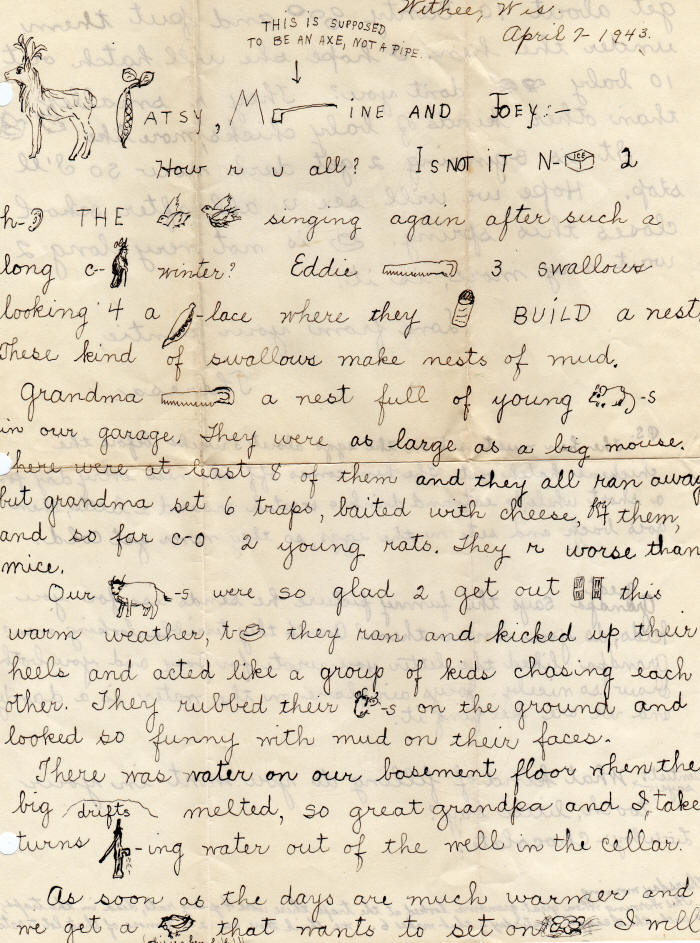 Withee, Wis.
April 7- 1943.
THIS IS SUPPOSED
TO BE AN AXE, NOT A PIPE.
ATSY, M INE AND JOEY:-
How r u all? IS NOT IT N- ICE 2
h- THE singing again after such a
long c-- winter? Eddie 3 swallows
looking 4 a -lace where they BUILD a nest.
These kind of swallows make nests of mud.
Grandma a nest full of young -s
in our garage. They were as large as a big mouse.
There were at least 8 of them and they all ran away
but grandma set 6 traps, baited with cheese, 4 them,
and so far c-o 2 young rats. They r worse than
mice.
Our -s were so glad 2 get out this
warm weather, t- they ran and kicked up their
heels and acted like a group of kids chasing each
other. They rubbed their -s on the ground and
looked so funny with mud on their faces.
There was water on our basement floor when the
big drifts melted, so great grandpa and I, take
turns -ing water out of the well in the cellar.
As soon as the days are much warmer and
we get a that wants to set on I will